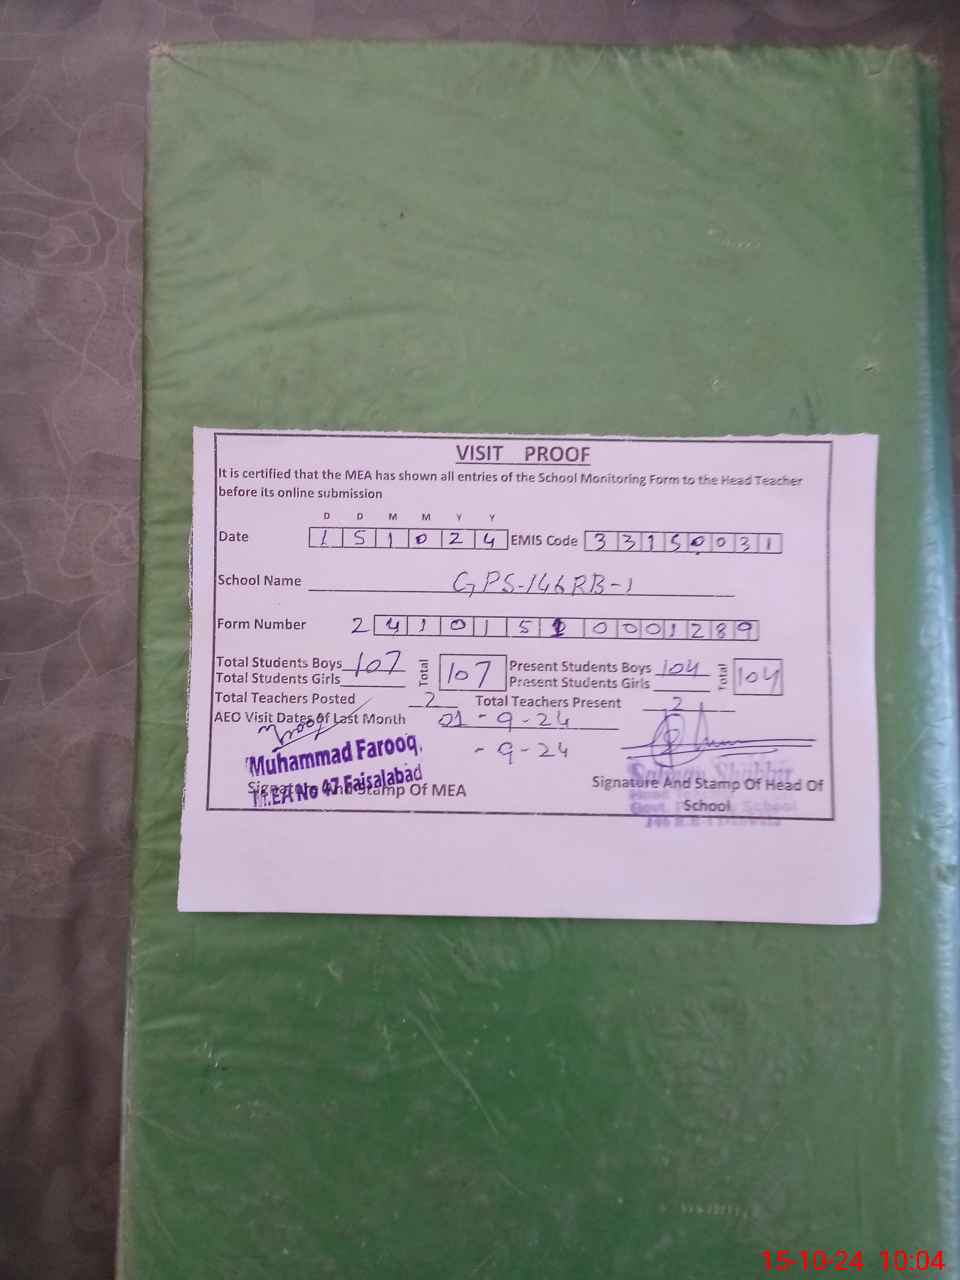 VISIT PROOF
It is certified that the MEA has shown all entries of the School Monitoring Form to the Head Teacher
before its online submission
D D M M Y Y
Date 1 5 1 0 2 4 EMIS Code 3 3 1 5 0 0 3 1
School Name GPS-146RB-1
Form Number 2 4 1 0 1 5 0 0 0 1 2 8 9
Total Students Boys 107 Total 107 Present Students Boys 104 Total 104
Total Students Girls Present Students Girls
Total Teachers Posted 2 Total Teachers Present 2
AEO Visit Dates of Last Month 01-9-24
-9-24
Muhammad Farooq,
M.EA No 47 Faisalabad
Signature And Stamp Of MEA
Signature And Stamp Of Head Of
School
15-10-24 10:04